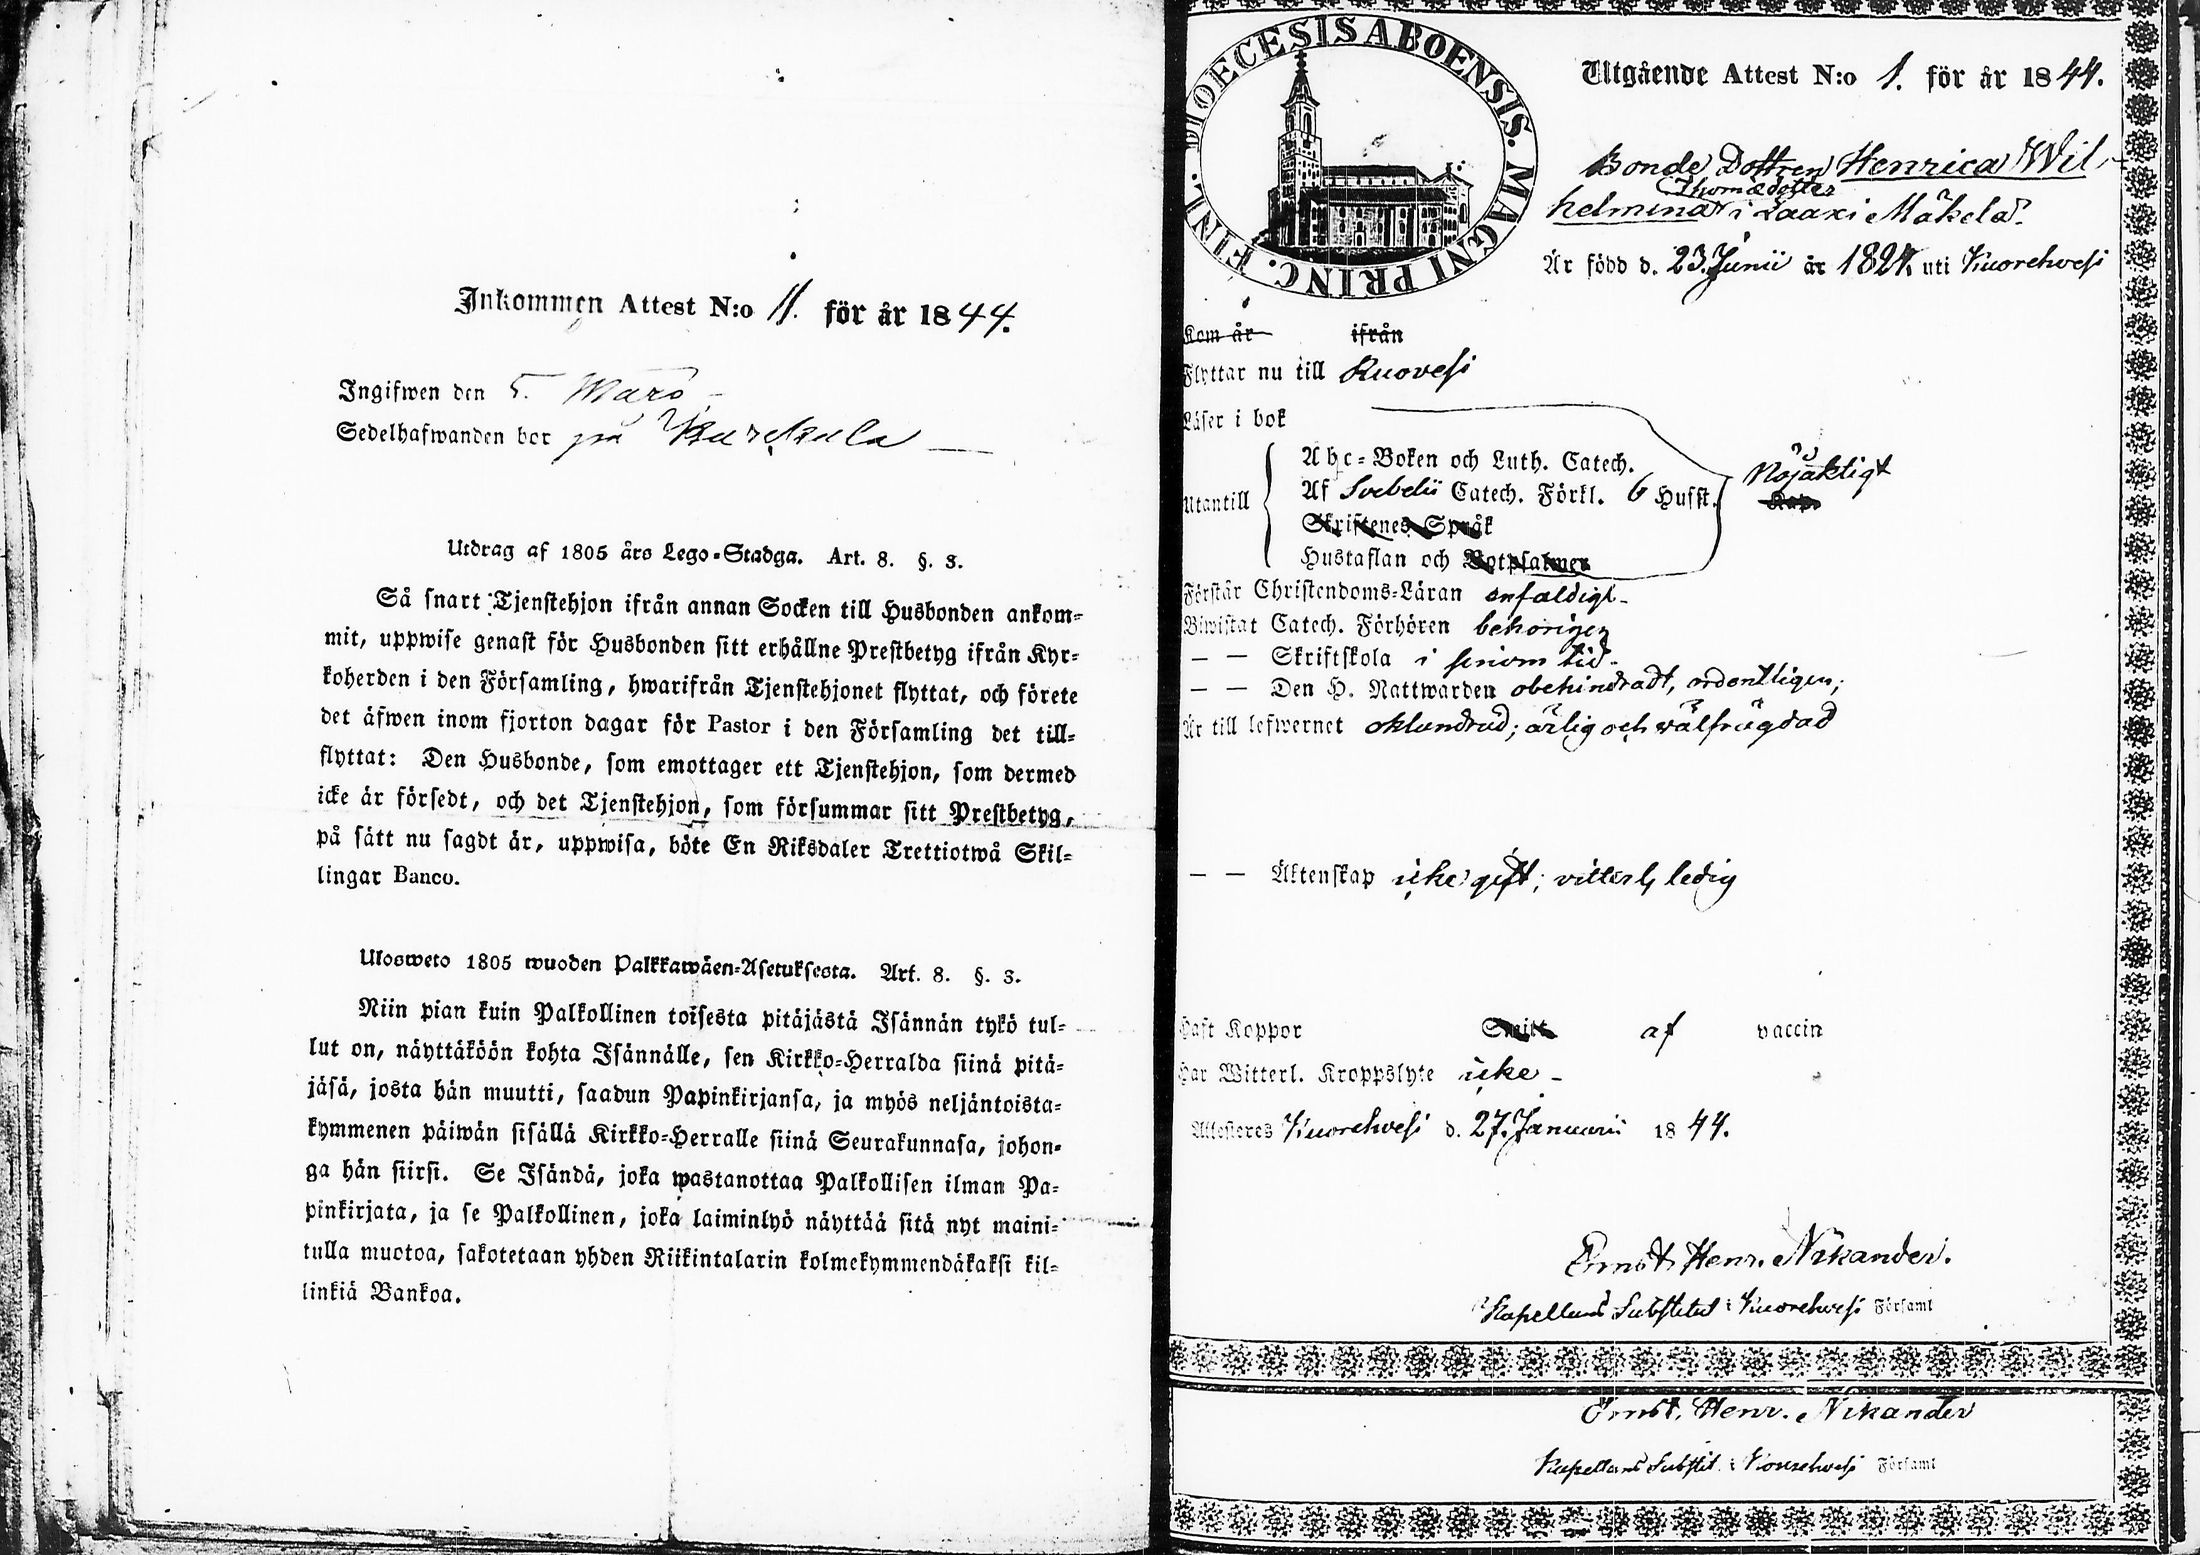 Inkommen Attest N:o 11. för år 1844.
Ingifwen den 5. Mars
Sedelhafwanden bor på Kurckula
Utdrag af 1805 års Lego-Stadga. Art. 8. §. 3.
Så snart Tjenstehjon ifrån annan Socken till Husbonden ankom-
mit, uppwise genast för Husbonden sitt erhållne Prestbetyg ifrån Kyr-
koherden i den Församling, hwarifrån Tjenstehjonet flyttat, och förete
det äfwen inom fjorton dagar för Pastor i den Församling det till-
flyttat: Den Husbonde, som emottager ett Tjenstehjon, som dermed
icke är försedt, och det Tjenstehjon, som försummar sitt Prestbetyg,
på sätt nu sagdt är, uppwisa, böte En Riksdaler Trettiotwå Skil-
lingar Banco.
Ulosweto 1805 wuoden Palkkawäen-Asetuksesta. Art. 8. §. 3.
Niin pian kuin Palkollinen toisesta pitäjästä Isännän tykö tul-
lut on, näyttäköön kohta Isännälle, sen Kirkko-Herralda siinä pitä-
jäsä, josta hän muutti, saadun Papinkirjansa, ja myös neljäntoista-
kymmenen päiwän sisällä Kirkko-Herralle siinä Seurakunnasa, johon-
ga hän siirsi. Se Isändä, joka wastanottaa Palkollisen ilman Pa-
pinkirjata, ja se Palkollinen, joka laiminlyö näyttää sitä nyt maini-
tulla muotoa, sakotetaan yhden Riikintalarin kolmekymmendäkaksi kil-
linkiä Bankoa.
DIOECESIS ABOENSIS. MAGNI PRINC. FINL.
Utgående Attest N:o 1. för år 1844.
Bonde Dottren Henrica Wil-
Thomædotter
helmina i Laaxi Mäkelä.
Är född d. 23. Junii år 1824. uti Kuorehvesi
Kom år ifrån
Flyttar nu till Ruovesi
Läser i bok
Abc-Boken och Luth. Catech.
Nöjaktigt
Utantill Af Svebelii Catech. Förkl. 6 Hufst.
Kap.
Skriftenes Språk
Hustaflan och Botpsalmer
Förstår Christendoms-Läran enfaldigt
Biwistat Catech. Förhören behörigen
— — Skriftskola i sinom tid
— — Den H. Nattwarden obehindradt, ordentligen;
Är till lefwernet oklandrad; ärlig och välfrägdad
— — Äktenskap icke gift; vitterl. ledig
Haft Koppor Smitt af vaccin
Har Witterl. Kroppslyte icke
Attesteres Kuorehvesi d. 27. Januarii 1844.
Ernst Henr. Nikander.
Kapellans Substitut i Kuorehvesi Församl
Ernst. Henr. Nikander
Kapellans Substit. i Kourehvesi Församl